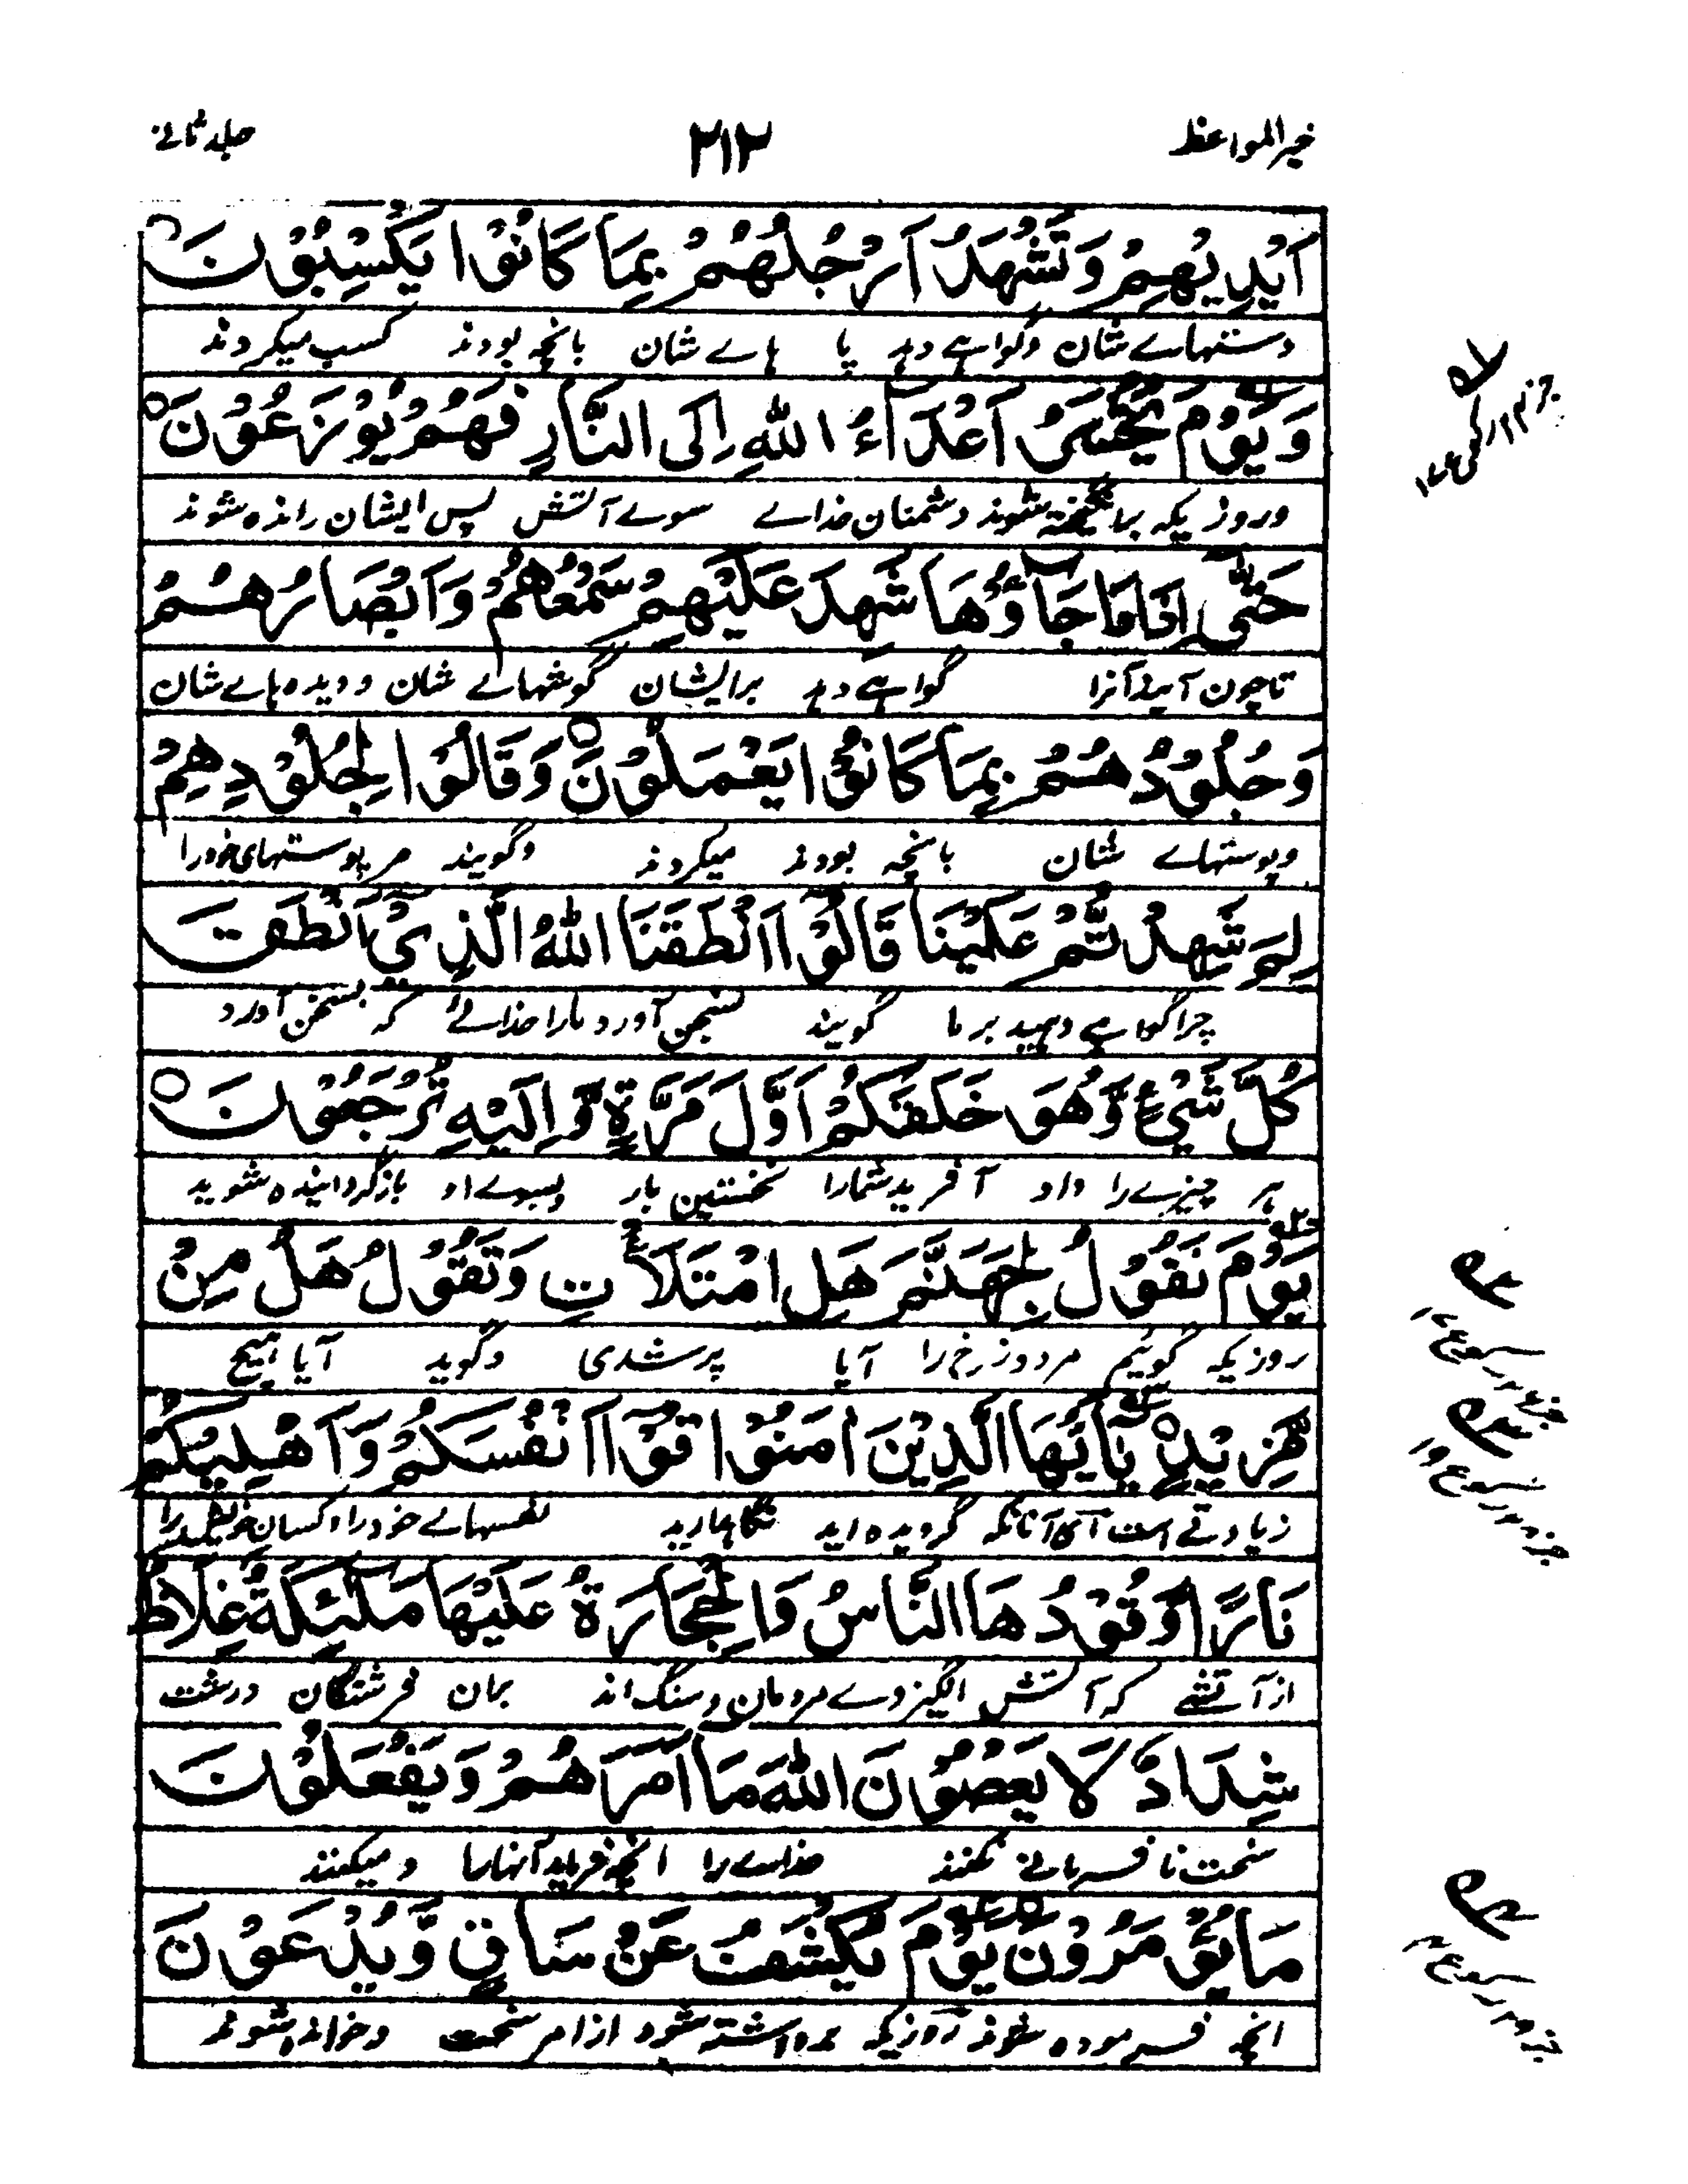 خیر المواعظ ۲۱۳ جلد ثانی
اَیْدِیْهِمْ وَتَشْهَدُ اَرْجُلُهُمْ بِمَا كَانُوْا یَكْسِبُوْنَ
دستهاے شان وگواہے دہد پا ہاے شان بانچہ بودند کسب میکردند
وَیَوْمَ یُحْشَرُ اَعْدَآءُ اللهِ اِلَی النَّارِ فَهُمْ یُوْزَعُوْنَ
وروزیکہ برانگیختہ شوند دشمنان خداے سوے آتش پس ایشان راندہ شوند
حَتّٰی اِذَا مَا جَآؤُهَا شَهِدَ عَلَیْهِمْ سَمْعُهُمْ وَاَبْصَارُهُمْ
تا چون آیند آنرا گواہے دہد برایشان گوشهاے شان و دیدہ ہاے شان
وَجُلُوْدُهُمْ بِمَا كَانُوْا یَعْمَلُوْنَ وَقَالُوْا لِجُلُوْدِهِمْ
وپوستهاے شان بانچہ بودند میکردند وگویند مر پوستهای خود را
لِمَ شَهِدْتُّمْ عَلَیْنَا قَالُوْٓا اَنْطَقَنَا اللهُ الَّذِیْٓ اَنْطَقَ
چرا گواہے دہید بر ما گویند بسخن آورد مارا خدائے کہ بسخن آورد
كُلَّ شَیْءٍ وَّهُوَ خَلَقَكُمْ اَوَّلَ مَرَّةٍ وَّاِلَیْهِ تُرْجَعُوْنَ
ہر چیزے را واو آفرید شمارا نخستین بار وبسوے او بازگردانیدہ شوید
یَوْمَ نَقُوْلُ لِجَهَنَّمَ هَلِ امْتَلَاْتِ وَتَقُوْلُ هَلْ مِنْ
روزیکہ گوئیم مر دوزخ را آیا پر شدی وگوید آیا ہیچ
مَّزِیْدٍ یٰٓاَیُّهَا الَّذِیْنَ اٰمَنُوْا قُوْٓا اَنْفُسَكُمْ وَاَهْلِیْكُمْ
زیادتے است آی آنانکہ گرویدہ اید نگاہدارید نفسهاے خود را وکسان خویش را
نَارًا وَّقُوْدُهَا النَّاسُ وَالْحِجَارَةُ عَلَیْهَا مَلٰٓئِكَةٌ غِلَاظٌ
از آتشے کہ آتش انگیز وے مردمان وسنگ اند بران فرشتگان درشت
شِدَادٌ لَّا یَعْصُوْنَ اللهَ مَآ اَمَرَهُمْ وَیَفْعَلُوْنَ
سخت نافرمانی نکنند خداے را انچہ فرماید آنہارا ومیکنند
مَا یُؤْمَرُوْنَ یَوْمَ یُكْشَفُ عَنْ سَاقٍ وَّیُدْعَوْنَ
انچہ فرمودہ شوند روزیکہ برداشتہ شود از امر سخت وخواندہ شوند